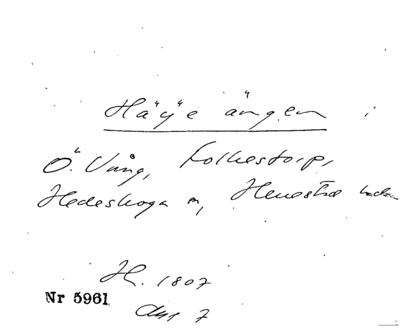 Häÿe ängen i
Ö. Vång, Folkestorp,
Hedeskoga m,
H. 1807
Nr 5961
7